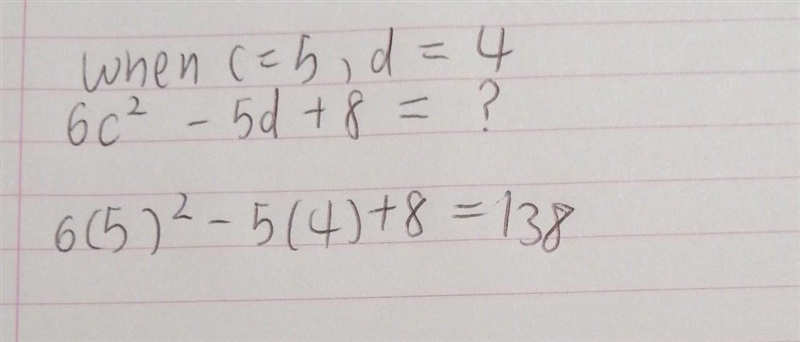 when c=5, d = 4
6c² - 5d + 8 = ?
6(5)² - 5(4)+8 = 138